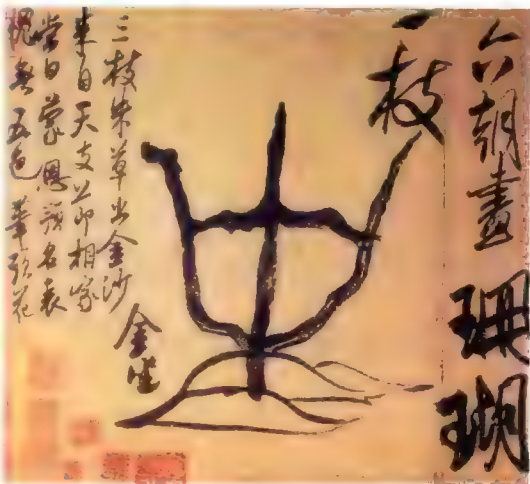 六朝畫珊瑚
一枝
金坐
三枝朱草出金沙
來自天支節相家
當日蒙恩預名表
愧無五色筆頭花